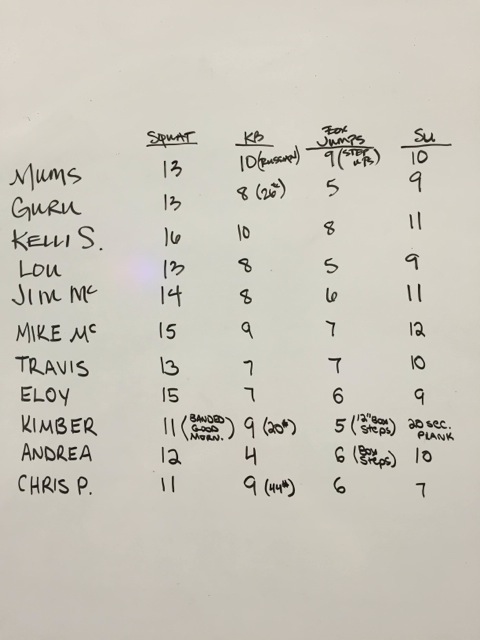 SQUAT KB BOX JUMPS SU
MUMS 13 10 (RUSSIAN) 9 (STEP UPS) 10
GURU 13 8 (26#) 5 9
KELLI S. 16 10 8 11
LOU 13 8 5 9
JIM MC 14 8 6 11
MIKE MC 15 9 7 12
TRAVIS 13 7 7 10
ELOY 15 7 6 9
KIMBER 11 (BANDED GOOD MORN.) 9 (20#) 5 (12" BOX STEPS) 20 SEC. PLANK
ANDREA 12 4 6 (BOX STEPS) 10
CHRIS P. 11 9 (44#) 6 7